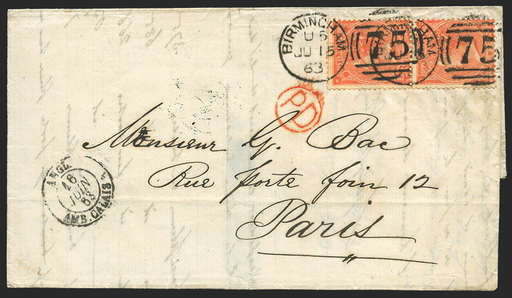 BIRMINGHAM
U5
JU 15
63
75
75
PD
Monsieur G. Bac
Rue porte foin 12
Paris
ANGL.
16
JUIN
63
AMB. CALAIS